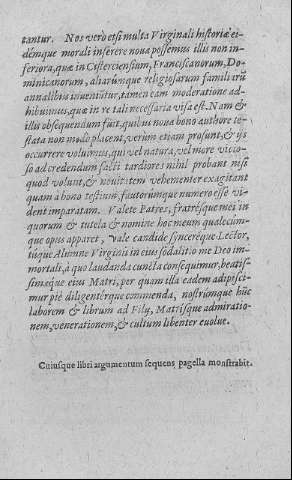 tantur. Nos vero etsi multa Virginali historiæ ei-
démque morali inserere noua possemus illis non in-
feriora, quæ in Cisterciensium, Franciscanorum, Do-
minicanorum, aliarúmque religiosarum familiarũ
annalibus inueniũtur, tamen eam moderatione ad-
hibuimus, quæ in re tali necessaria visa est. Nam &
illis obsequendum fuit, quibus noua bono authore te-
stata non modò placent, verùm etiam prosunt, & ijs
occurrere voluimus, qui vel natura, vel more vitio-
so ad credendum facti tardiores nihil probant nisi
quod volunt, & nouitatem vehementer exagitant
quam à bono testium, fautorúmque numero esse vi-
dent imparatam. Valete Patres, fratrésque mei in
quorum & tutela & nomine hoc meum qualecùm-
que opus apparet, Vale candide syncerèque Lector,
túque Alumne Virginis in eius sodalitio me Deo im-
mortali, à quo laudanda cuncta consequimur, beatis-
simæque eius Matri, per quam illa eadem adipisci-
mur piè diligentérque commenda, nostrúmque hũc
laborem & librum ad Filij, Matrísque admiratio-
nem, venerationem, & cultum libenter euolue.
Cuiusque libri argumentum sequens pagella monstrabit.